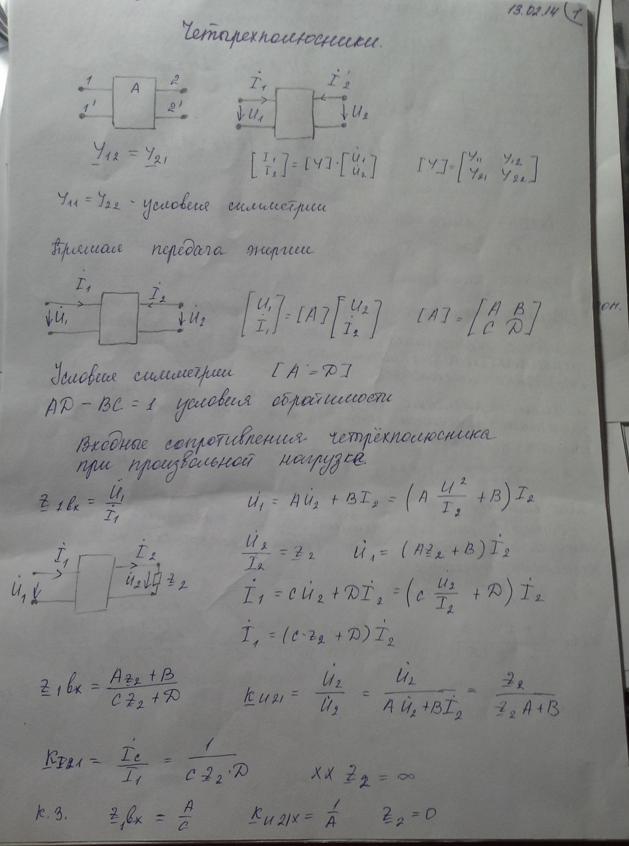 13.02.14 1
Четырехполюсники.
1 A 2
1' 2'
İ₁ İ₂'
U̇₁ U̇₂
Y₁₂ = Y₂₁
[I₁ I₂] = [Y]·[U̇₁ U̇₂] [Y] = [Y₁₁ Y₁₂ Y₂₁ Y₂₂]
Y₁₁ = Y₂₂ - условия симметрии
Прямая передача энергии
İ₁ İ₂
U̇₁ U̇₂ [U̇₁ İ₁] = [A] [U₂ İ₂] [A] = [A B C D]
он.
Условия симметрии [A = D]
AD − BC = 1 условия обратимости
Входные сопротивления четырёхполюсника
при произвольной нагрузке.
Z₁вх = U̇₁/İ₁ U̇₁ = AU̇₂ + BI₂ = (A U²/I₂ + B) I₂
U̇₂/I₂ = Z₂ U̇₁ = (AZ₂ + B) İ₂
İ₁ İ₂
U̇₁ U̇₂ Z₂
İ₁ = CU̇₂ + Dİ₂ = (C U̇₂/I₂ + D) İ₂
İ₁ = (C·Z₂ + D) İ₂
Z₁вх = (AZ₂ + B)/(CZ₂ + D) KU21 = U̇₂/U̇₂ = U̇₂/(AU̇₂ + Bİ₂) = Z₂/(Z₂A + B)
KI21 = İc/I₁ = 1/(CZ₂·D) XX Z₂ = ∞
К.З. Z₁вх = A/C KU21X = 1/A Z₂ = 0